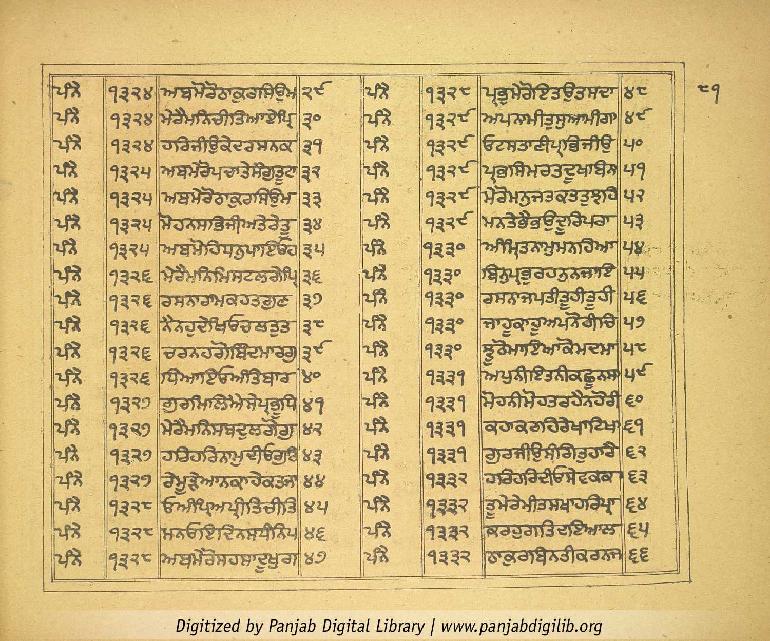 ੮੧
ਪੰਨੈ ੧੩੨੪ ਅਬਮੋਰੋਠਾਕੁਰਸਿਉਮ ੨੯ ਪੰਨੈ ੧੩੨੮ ਪ੍ਰਭੁਮੇਰੋਇਤਉਤਸਦਾ ੪੮
ਪੰਨੈ ੧੩੨੪ ਮੇਰੈਮਨਿਚੀਤਿਆਏਪ੍ਰਿ ੩੦ ਪੰਨੈ ੧੩੨੯ ਅਪਨਾਮੀਤੁਸੁਆਮੀਗਾ ੪੯
ਪੰਨੈ ੧੩੨੪ ਹਰਿਜੀਉਕੇਦਰਸਨਕ ੩੧ ਪੰਨੈ ੧੩੨੯ ਓਟਸਤਾਣੀਪ੍ਰਭਜੀਉ ੫੦
ਪੰਨੈ ੧੩੨੫ ਅਬਮੇਰੋਪੰਚਾਤੇਸੰਗੁਤੂਟਾ ੩੨ ਪੰਨੈ ੧੩੨੯ ਪ੍ਰਭਸਿਮਰਤਦੂਖਬਿਨ ੫੧
ਪੰਨੈ ੧੩੨੫ ਅਬਮੇਰੋਠਾਕੁਰਸਿਉਮ ੩੩ ਪੰਨੈ ੧੩੨੯ ਮੇਰੋਮਨੁਜਤਕਤਤੁਝਹਿ ੫੨
ਪੰਨੈ ੧੩੨੫ ਮੋਹਨਸਭਿਜੀਅਤੇਰੇਤੂ ੩੪ ਪੰਨੈ ੧੩੨੯ ਮਨਤੇਭੈਭਉਦੂਰਿਪਰਾ ੫੩
ਪੰਨੈ ੧੩੨੫ ਅਬਮੋਹਿਧਨੁਪਾਇਓਹ ੩੫ ਪੰਨੈ ੧੩੩੦ ਅੰਮ੍ਰਿਤਨਾਮੁਮਨਹਿਆ ੫੪
ਪੰਨੈ ੧੩੨੬ ਮੇਰੈਮਨਿਮਿਸਟਲਗੇਪ੍ਰਿ ੩੬ ਪੰਨੈ ੧੩੩੦ ਬਿਨੁਪ੍ਰਭਰਹਨੁਨਜਾਇ ੫੫
ਪੰਨੈ ੧੩੨੬ ਰਸਨਾਰਾਮਕਹਤਗੁਣ ੩੭ ਪੰਨੈ ੧੩੩੦ ਰਸਨਾਜਪਤੀਤੂਹੀਤੂਹੀ ੫੬
ਪੰਨੈ ੧੩੨੬ ਨੈਨਹੁਦੇਖਿਓਚਲਤੁਤ ੩੮ ਪੰਨੈ ੧੩੩੦ ਜਾਹੂਕਾਹੂਅਪੁਨੋਹੀਚਿ ੫੭
ਪੰਨੈ ੧੩੨੬ ਚਰਨਹਗੋਬਿੰਦਮਾਰਗੁ ੩੯ ਪੰਨੈ ੧੩੩੦ ਝੂਠੋਮਾਇਆਕੋਮਦਮਾ ੫੮
ਪੰਨੈ ੧੩੨੬ ਧਿਆਇਓਅੰਤਿਬਾਰ ੪੦ ਪੰਨੈ ੧੩੩੧ ਅਪੁਨੀਇਤਨੀਕਛੂਨਸਾ ੫੯
ਪੰਨੈ ੧੩੨੭ ਗੁਰਮਿਲਿਐਸੇਪ੍ਰਭੂਧਿ ੪੧ ਪੰਨੈ ੧੩੩੧ ਮੋਹਨੀਮੋਹਤਰਹੈਨਹੋਰੀ ੬੦
ਪੰਨੈ ੧੩੨੭ ਮੇਰੈਮਨਿਸਬਦੁਲਗੋਗੁ ੪੨ ਪੰਨੈ ੧੩੩੧ ਕਹਾਕਰਹਿਰੇਖਾਟਿਖਾ ੬੧
ਪੰਨੈ ੧੩੨੭ ਹਰਿਹਰਿਨਾਮੁਦੀਓਗੁਰਿ ੪੩ ਪੰਨੈ ੧੩੩੧ ਗੁਰਜੀਉਸੰਗਿਤੁਹਾਰੈ ੬੨
ਪੰਨੈ ੧੩੨੭ ਰੇਮੂੜੇਆਨਕਾਹੇਕਤਜਾ ੪੪ ਪੰਨੈ ੧੩੩੨ ਹਰਿਹਰਿਦੀਓਸੇਵਕਕ ੬੩
ਪੰਨੈ ੧੩੨੮ ਓਅੰਪ੍ਰਿਅਪ੍ਰੀਤਿਚੀਤਿ ੪੫ ਪੰਨੈ ੧੩੩੨ ਤੂਮੇਰੇਮੀਤਸਖਾਹਰਿਪ੍ਰਾ ੬੪
ਪੰਨੈ ੧੩੨੮ ਮਨਓਇਦਿਨਸਧੰਨਿਪ ੪੬ ਪੰਨੈ ੧੩੩੨ ਕਰਹੁਗਤਿਦਇਆਲ ੬੫
ਪੰਨੈ ੧੩੨੮ ਅਬਮੇਰੋਸਹਸਾਦੂਖੁਗ ੪੭ ਪੰਨੈ ੧੩੩੨ ਠਾਕੁਰਬਿਨਤੀਕਰਨਜ ੬੬
Digitized by Panjab Digital Library | www.panjabdigilib.org